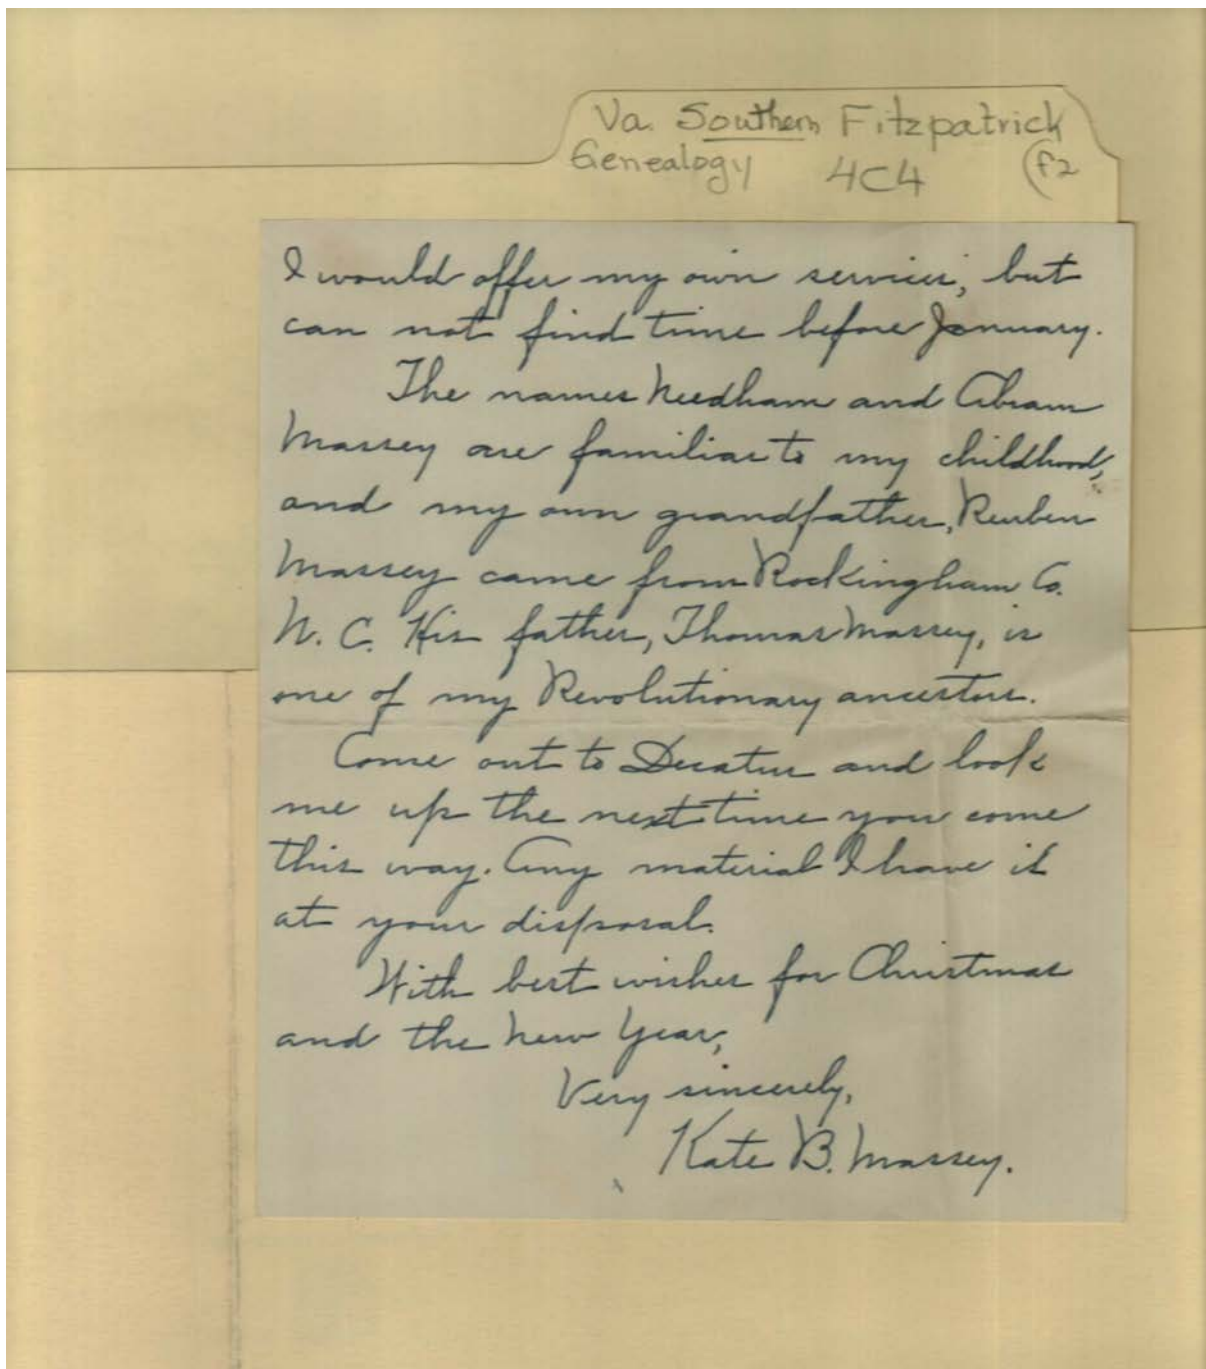 Va. Southern Fitzpatrick
Genealogy 4C4 (F2
I would offer my own services, but
can not find time before January.
The names Needham and Abram
Massey are familiar to my childhood,
and my own grandfather, Reuben
Massey came from Rockingham Co.
N. C. His father, Thomas Massey, is
one of my Revolutionary ancestors.
Come out to Decatur and look
me up the next time you come
this way. Any material I have is
at your disposal.
With best wishes for Christmas
and the New Year,
Very sincerely,
Kate B. Massey.